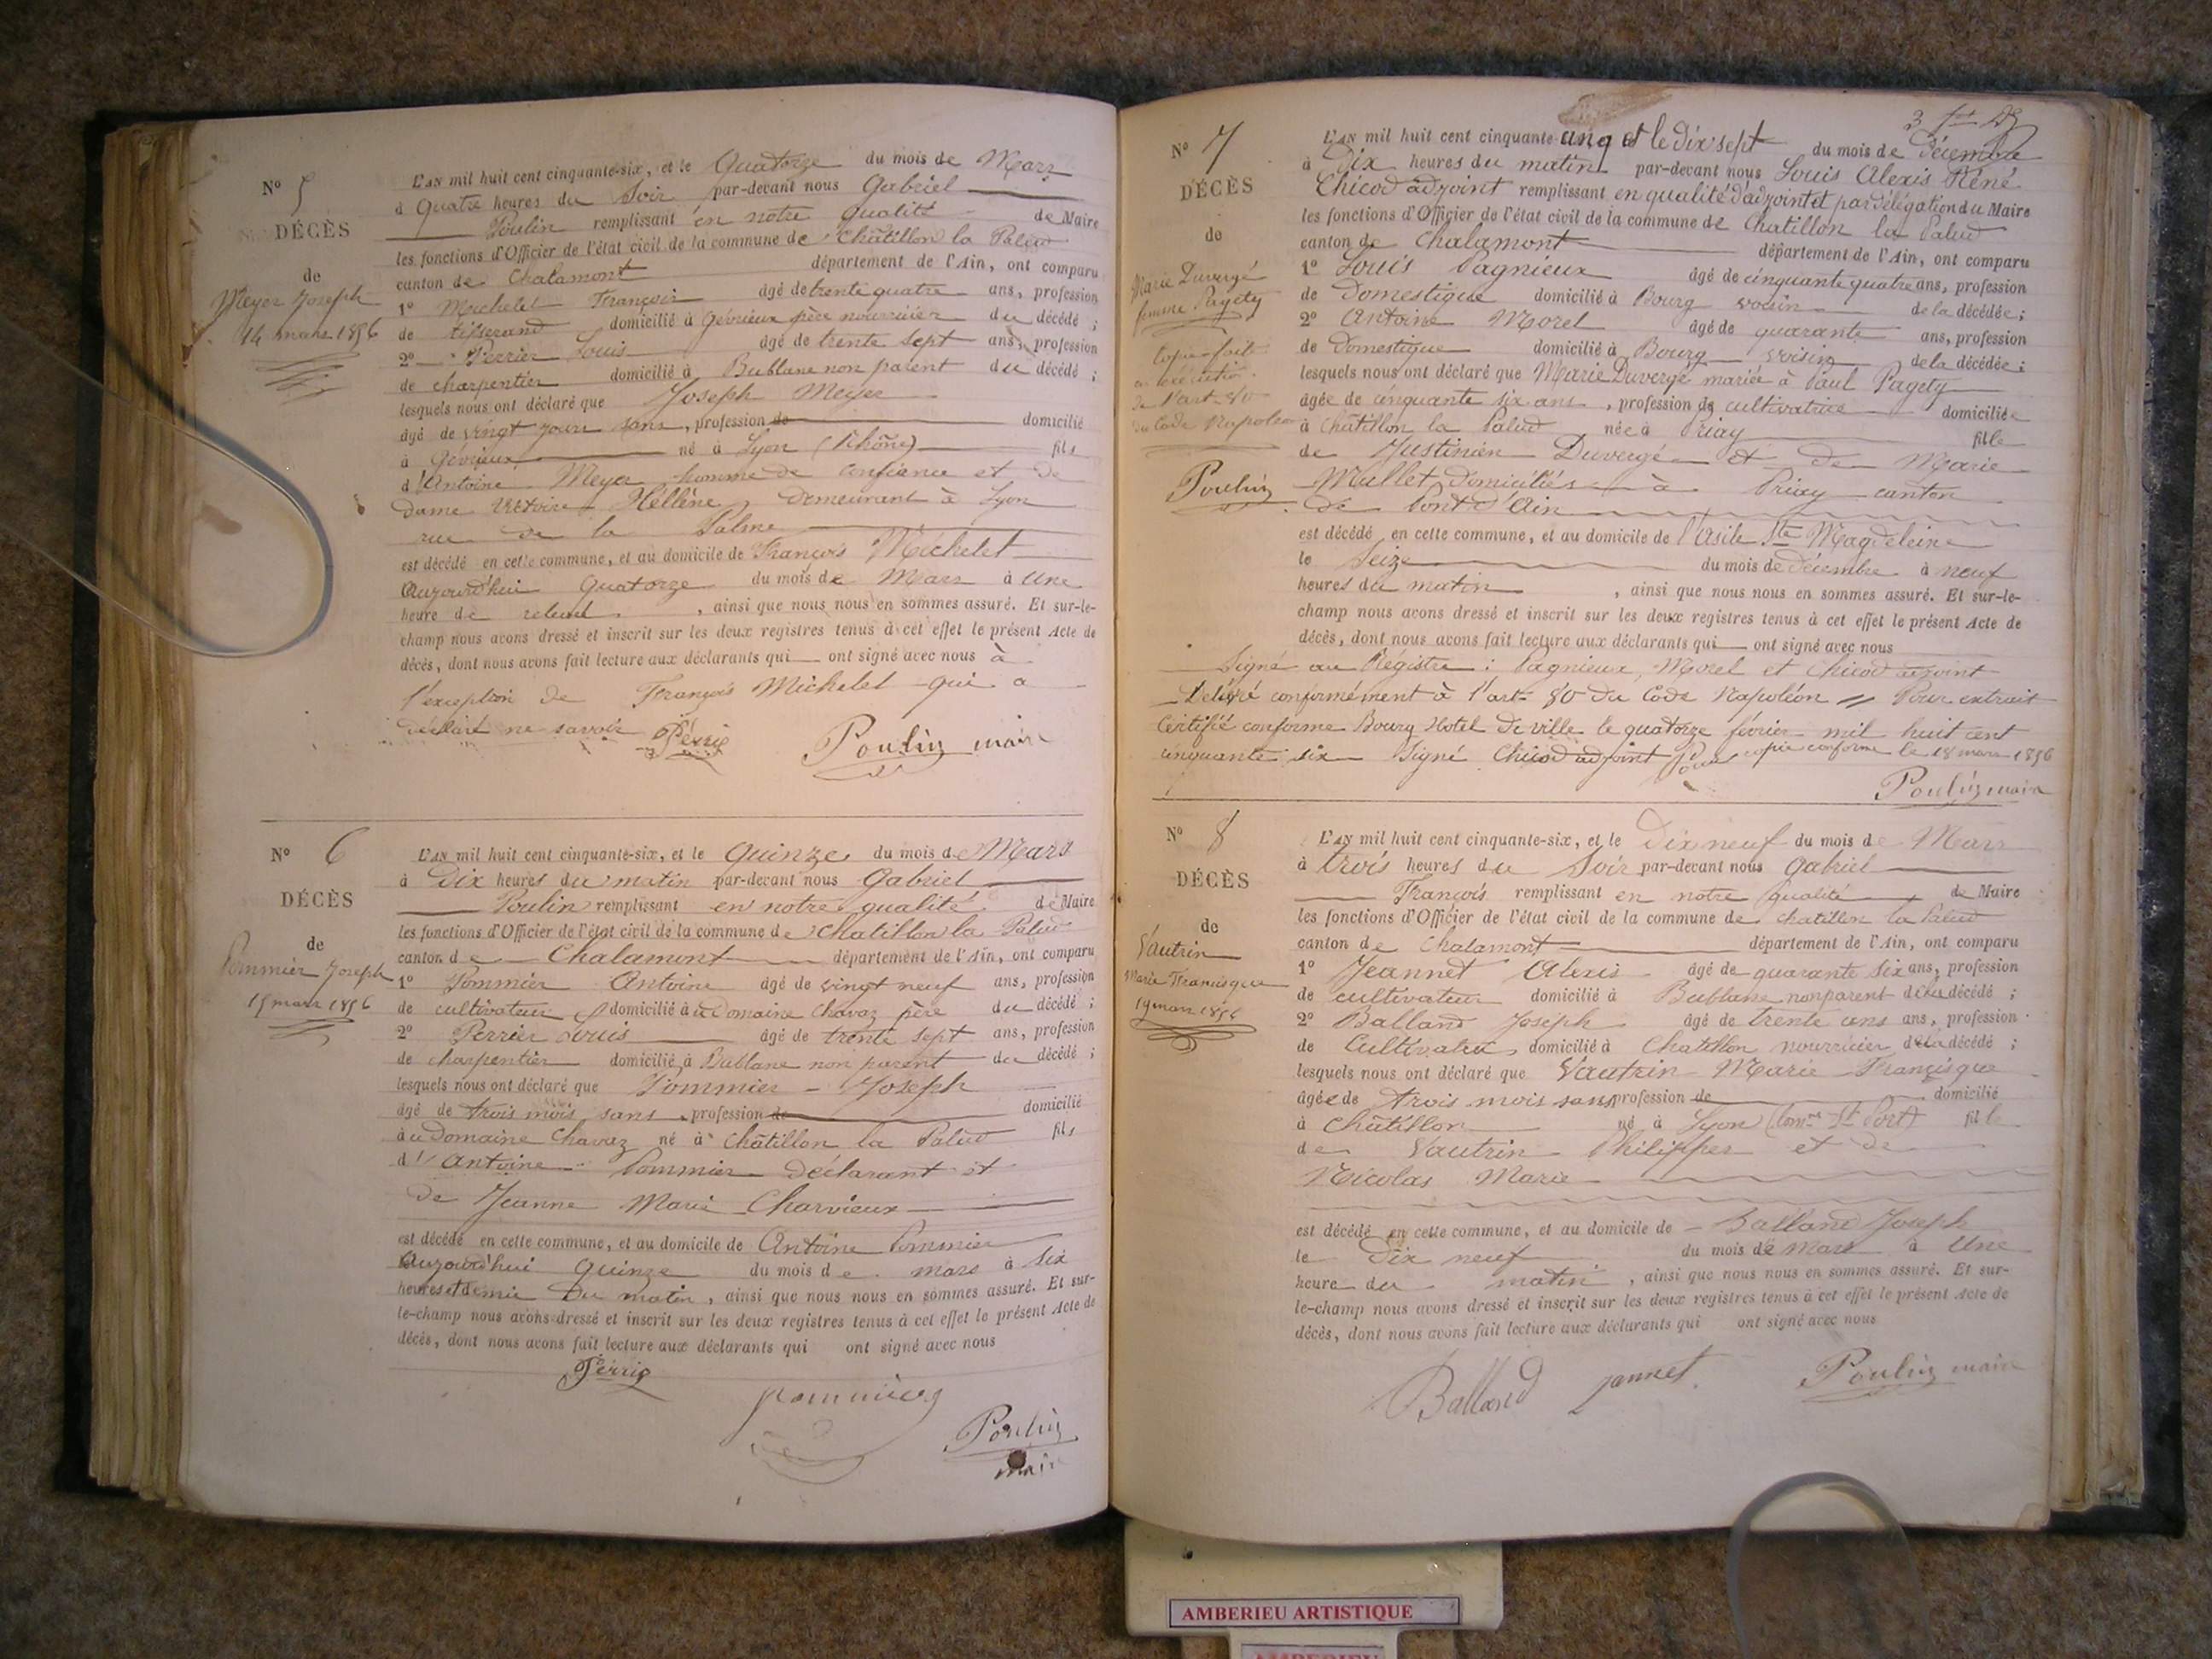 N° 5
DÉCÈS
de
Meyer Joseph
14 mars 1856
L'AN mil huit cent cinquante-six, et le Quatorze du mois de Mars
à Quatre heures du Soir par-devant nous Gabriel
Poulin remplissant en notre qualité de Maire
les fonctions d'Officier de l'état civil de la commune de Châtillon la Palud
canton de Chalamont département de l'Ain, ont comparu
1° Michelet François âgé de trente quatre ans, profession
de tisserand domicilié à Gévrieux père nourricier du décédé ;
2° Perrier Louis âgé de trente sept ans, profession
de charpentier domicilié à Bublane non parent du décédé ;
lesquels nous ont déclaré que Joseph Meyer
âgé de vingt jours sans, profession de domicilié
à Gévrieux né à Lyon (Rhône) fils
d'Antoine Meyer homme de confiance et de
Dame Victoire Héllène demeurant à Lyon
rue de la Palme
est décédé en cette commune, et au domicile de François Michelet
Aujourd'hui Quatorze du mois de Mars à Une
heure de relevé, ainsi que nous nous en sommes assuré. Et sur-le-
champ nous avons dressé et inscrit sur les deux registres tenus à cet effet le présent Acte de
décès, dont nous avons fait lecture aux déclarants qui ont signé avec nous à
l'exception de François Michelet qui a
déclaré ne savoir Perrie Poulin maire
N° 6
DÉCÈS
de
Pommier Joseph
15 mars 1856
L'AN mil huit cent cinquante-six, et le Quinze du mois de Mars
à Dix heures du matin par-devant nous Gabriel
Poulin remplissant en notre qualité de Maire
les fonctions d'Officier de l'état civil de la commune de Chatillon la Palud
canton de Chalamont département de l'Ain, ont comparu
1° Pommier Antoine âgé de vingt neuf ans, profession
de cultivateur domicilié au Domaine Chavaz père du décédé ;
2° Perrier Louis âgé de trente sept ans, profession
de charpentier domicilié à Bublane non parent du décédé ;
lesquels nous ont déclaré que Pommier Joseph
âgé de trois mois sans profession de domicilié
au Domaine Chavaz né à Châtillon la Palud fils
d'Antoine Pommier déclarant et
de Jeanne Marie Charvieux
est décédé en cette commune, et au domicile de Antoine Pommier
Aujourd'hui Quinze du mois de mars à Six
heures et demie du matin, ainsi que nous nous en sommes assuré. Et sur-
le-champ nous avons dressé et inscrit sur les deux registres tenus à cet effet le présent Acte de
décès, dont nous avons fait lecture aux déclarants qui ont signé avec nous
Perrie
pommier
Poulin
maire
N° 7
DÉCÈS
de
Marie Duvergé
femme Pagety
Copie faite
en exécution
de l'art. 80
du Code Napoléon
Poulin
L'AN mil huit cent cinquante cinq et le Dix sept du mois de Décembre
à Dix heures du matin par-devant nous Louis Alexis Réné
Chicod adjoint remplissant en qualité d'adjoint et par délégation du Maire
les fonctions d'Officier de l'état civil de la commune de Chatillon la Palud
canton de Chalamont département de l'Ain, ont comparu
1° Louis Pagnieux âgé de cinquante quatre ans, profession
de Domestique domicilié à Bourg voisin de la décédée ;
2° Antoine Morel âgé de quarante ans, profession
de Domestique domicilié à Bourg voisin de la décédée ;
lesquels nous ont déclaré que Marie Duvergé mariée à Paul Pagety
âgée de cinquante six ans, profession de cultivatrice domiciliée
à Châtillon la Palud née à Priay fille
de Justinien Duvergé et de Marie
Mallet Domiciliés à Priay canton
de Pont d'Ain
est décédé en cette commune, et au domicile de l'Asile Ste Magdeleine
le Seize du mois de décembre à neuf
heures du matin, ainsi que nous nous en sommes assuré. Et sur-le-
champ nous avons dressé et inscrit sur les deux registres tenus à cet effet le présent Acte de
décès, dont nous avons fait lecture aux déclarants qui ont signé avec nous
Signé au Régistre : Pagnieux, Morel et Chicod adjoint
Délivré conformément à l'art. 80 du Code Napoléon // Pour extrait
Certifié conforme Bourg Hotel de ville le quatorze février mil huit cent
cinquante six Signé Chicod adjoint Pour copie conforme le 18 mars 1856
Poulin maire
N° 8
DÉCÈS
de
Vautrin
Marie Francisque
19 mars 1856
L'AN mil huit cent cinquante-six, et le Dix neuf du mois de Mars
à trois heures du Soir par-devant nous Gabriel
François remplissant en notre qualité de Maire
les fonctions d'Officier de l'état civil de la commune de chatillon la Palud
canton de Chalamont département de l'Ain, ont comparu
1° Jeannet Alexis âgé de quarante six ans, profession
de cultivateur domicilié à Bublane non parent de la décédé ;
2° Balland Joseph âgé de trente ans ans, profession
de Cultivateur domicilié à Chatillon nourricier de la décédé ;
lesquels nous ont déclaré que Vautrin Marie Françisque
âgée de trois mois sans profession de domicilié
à Châtillon né à Lyon fille
de Vautrin Philippes et de
Nicolas Marie
est décédé en cette commune, et au domicile de Balland Joseph
le Dix neuf du mois de Mars à Une
heure du matin, ainsi que nous nous en sommes assuré. Et sur-
le-champ nous avons dressé et inscrit sur les deux registres tenus à cet effet le présent Acte de
décès, dont nous avons fait lecture aux déclarants qui ont signé avec nous
Balland Jannet Poulin maire
AMBERIEU ARTISTIQUE
AMBERIEU